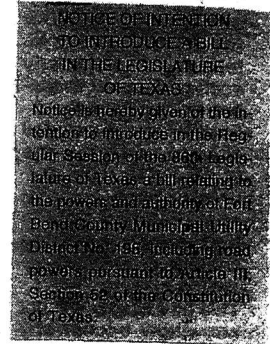 NOTICE OF INTENTION
TO INTRODUCE A BILL
IN THE LEGISLATURE
OF TEXAS
Notice is hereby given of the in-
tention to introduce in the Reg-
ular Session of the Legis-
lature of Texas a bill relating to
the powers and authority of Fort
Bend County Municipal Utility
District No. including road
powers pursuant to Article III,
Section 52 of the Constitution
of Texas.